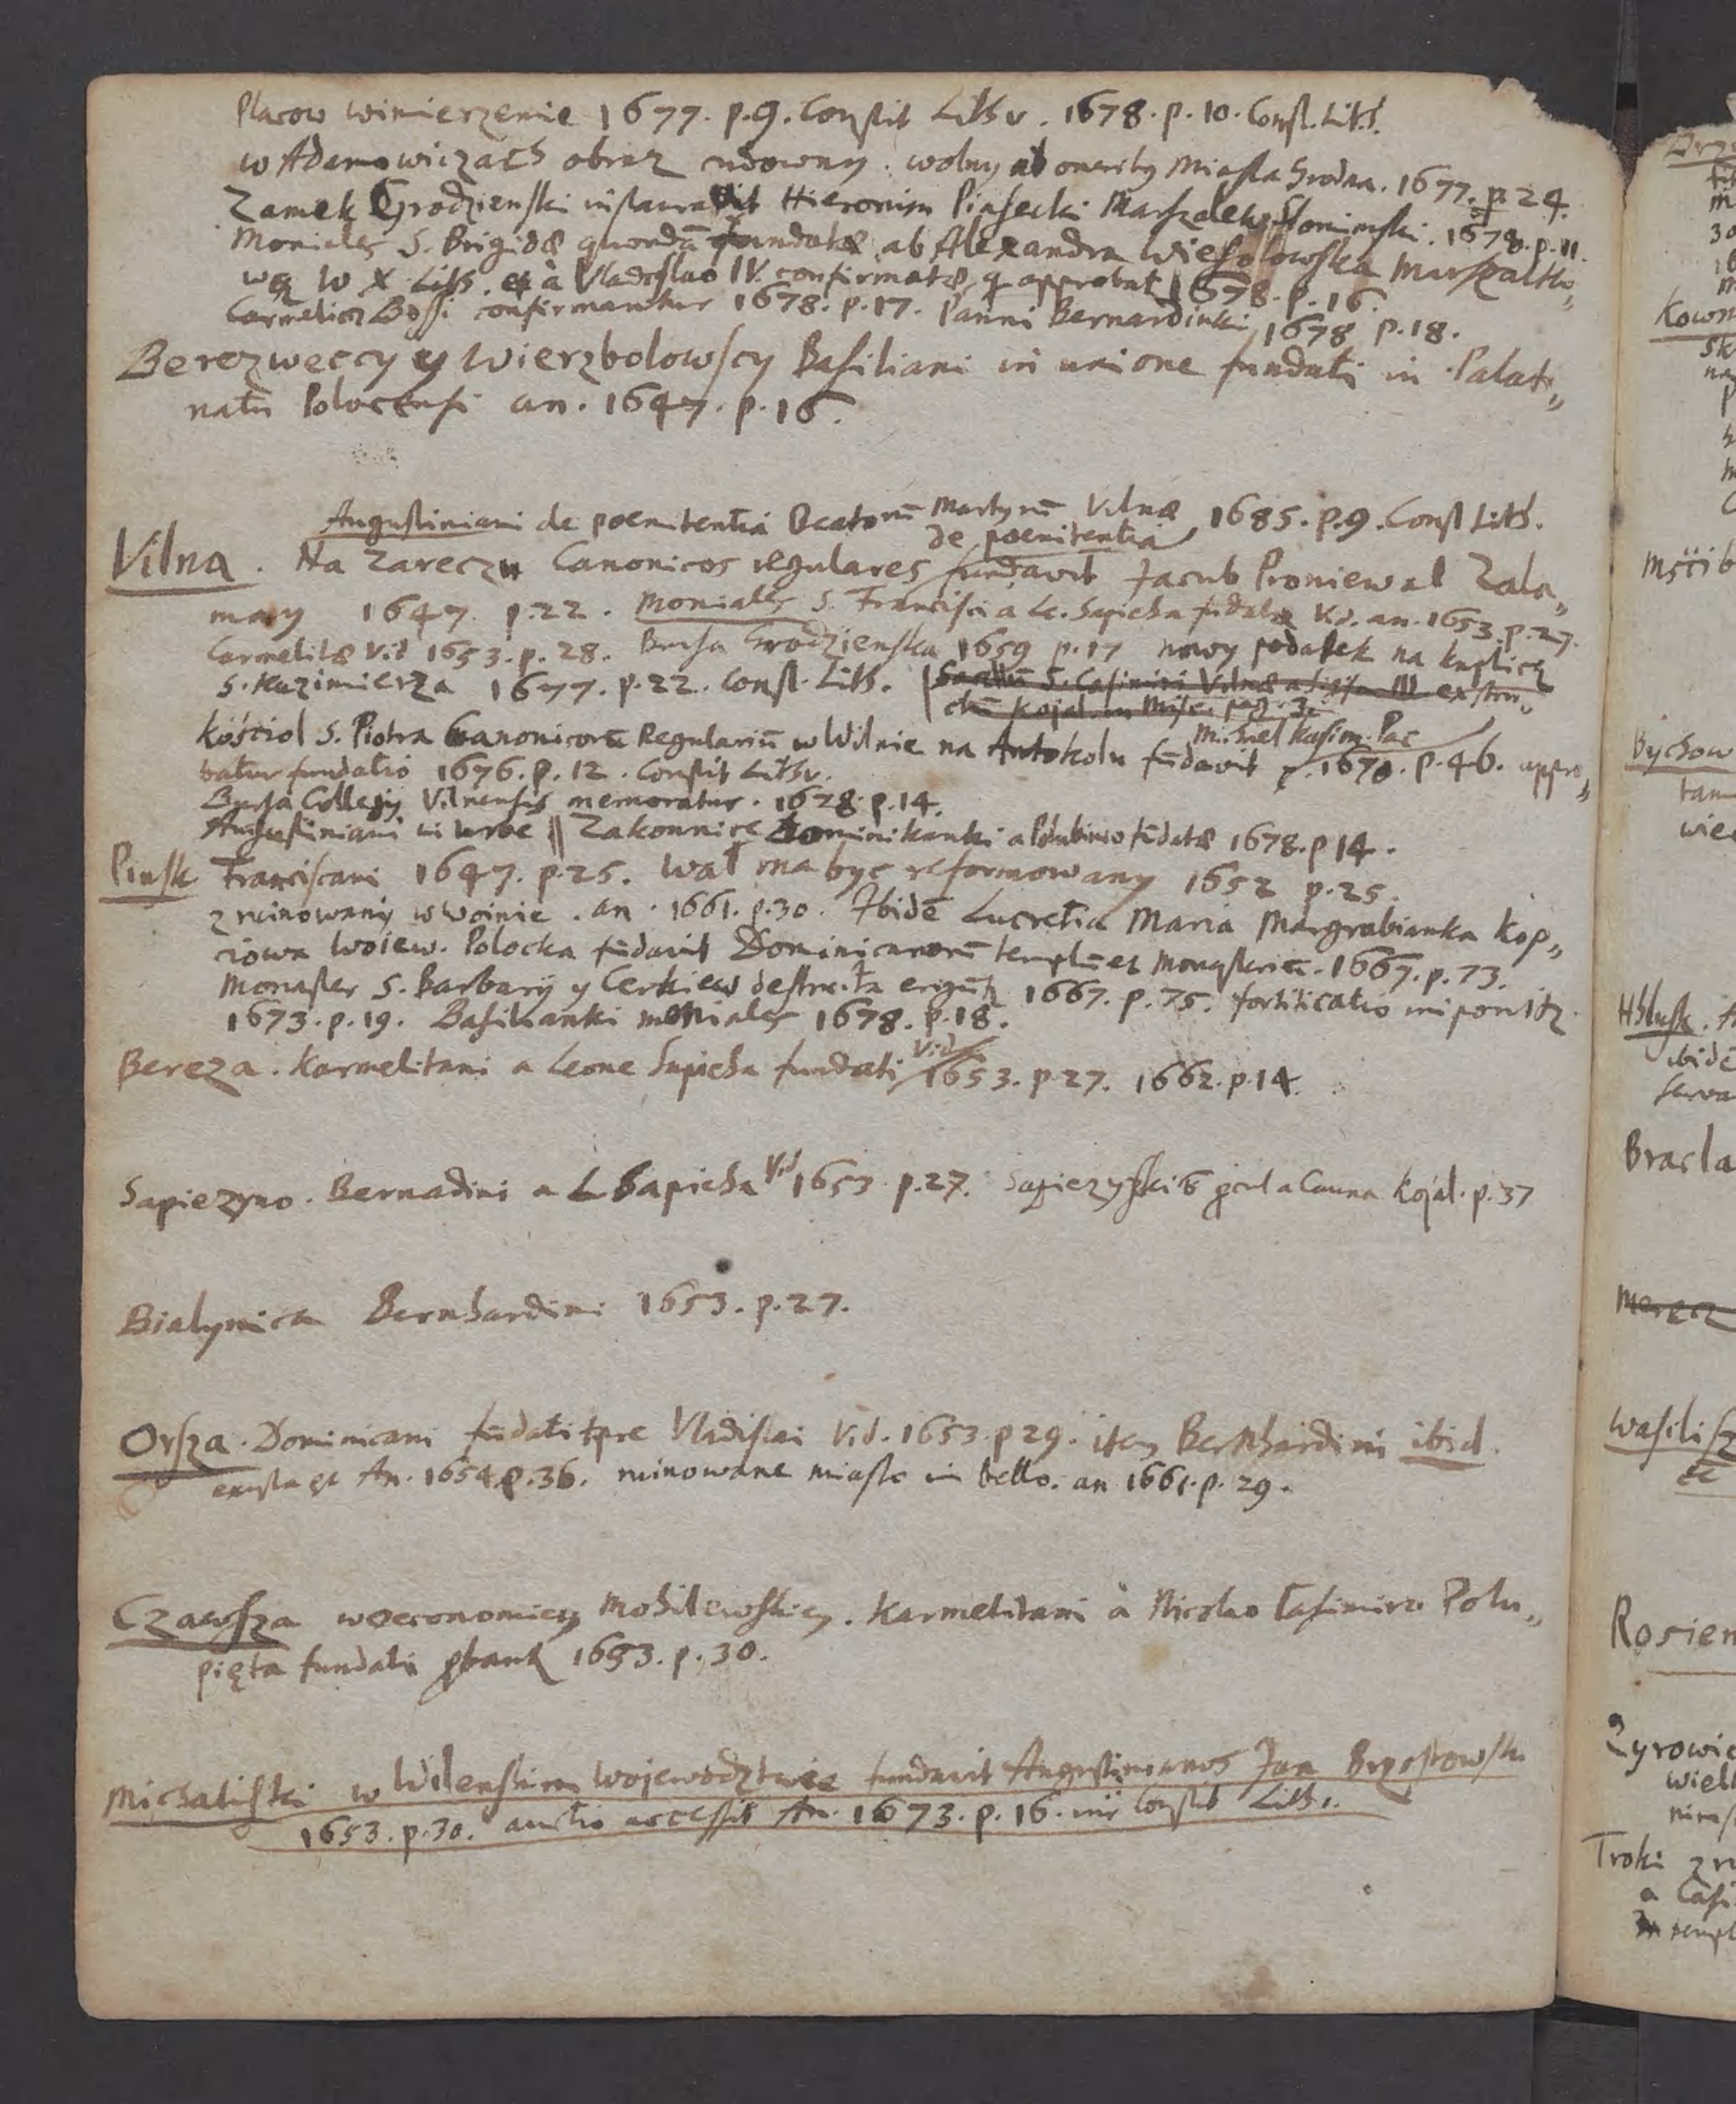 Placow wimierzenie 1677. p. 9. Constit Lithv. 1678. p. 10. Const. Lith.
w Adamowiczach obraz cudowny. wolny ab oneribus Miasta Grodna. 1677. p. 24.
Zamek Grodzienski instauravit Hieronim Piasecki Marszalek Slonimski. 1678. p. 11.
Moniales S. Brigidæ quondã fundatæ ab Alexandra Wiesolowska Marszalko„
wą W X Lith. et à Vladislao IV. confirmatæ, approbat 1678. p. 16.
Carmelicz Bossi confirmantur 1678. p. 17. Panni Bernardinki 1678 p. 18.
Berezweccy y Wierzbolowscy Basiliani in unione fundati in Palati„
natu Polocensi an. 1647. p. 16.
Augustiniani de poenitentia Beatorũ Martyrũ Vilnæ 1685. p. 9. Const Lith.
de poenitentia
Vilna. Na Zareczu Canonicos regulares fundavit Jacub Proniewal Zala„
many 1647. p. 22. Moniales S. Francisci a Le. Sapieha fũdatæ Vid. an. 1653. p. 27.
Carmelitæ Vid 1653. p. 28. Bursa Grodzienska 1659 p. 17 nowy podatek na kaplicę
S. Kazimierza 1677. p. 22. Const. Lith. Sacellũ S. Casimiri Vilnæ a Sigism III. exstru„
ctũ Kojal. in Misc. pag. 3.
Michael Kasim. Pac
Kościol S. Piotra Canonicorũ Regulariũ w Wilnie na Antokolu fũdavit 1670. p. 46. appro„
batur fundatio 1676. p. 12. Constit Lithv.
Bursa Collegij Vilnensis memoratur. 1678. p. 14.
Augustiniani in urbe || Zakonnice Dominikanki a Polubinso fũdatæ 1678. p 14.
Pinsk Franciscani 1647. p. 25. Wał ma byc reformowany 1652 p. 25.
zruinowany w woinie. an. 1661. p. 30. Ibidẽ Lucretia Maria Margrabianka Kop„
ciowa Woiew. Polocka fũdavit Dominicanorũ templũ et Monasteriũ. 1667. p. 73.
Monaster S. Barbary y Cerkiew destructa 1667. p. 75. fortificatio imponitr
1673. p. 19. Basilianki moniales 1678. p. 18.
Bereza. Karmelitani a Leone Sapieha fundati Vid 1653. p. 27. 1662. p. 14.
Sapiezyno. Bernadini a L Sapieha Vid 1653 p. 27. Kojal. p. 37
Bialynica Bernhardini 1653. p. 27.
Orsza. Dominicani fũdati tpre Vladislai Vid. 1653. p 29. item Bernhardini ibid.
An. 1654. p. 36. ruinowane miasto in bello. an 1661. p. 29.
Czawsza w oeconomiey Mohilewskiey. Karmelitani à Nicolao Casimiro Polu„
pięta fundati 1653. p. 30.
Michaliszki w Wilenskim Wojewodztwie fundavit Augustinianos Jan Brzostowski
1653. p. 30. auctio accessit An. 1673. p. 16. Constit Lith.
Kown
Mścib
Bychow
Hłusk.
ibidẽ
Bracla
Merecz
Wasilisz
Rosien
Zyrowic
Troki